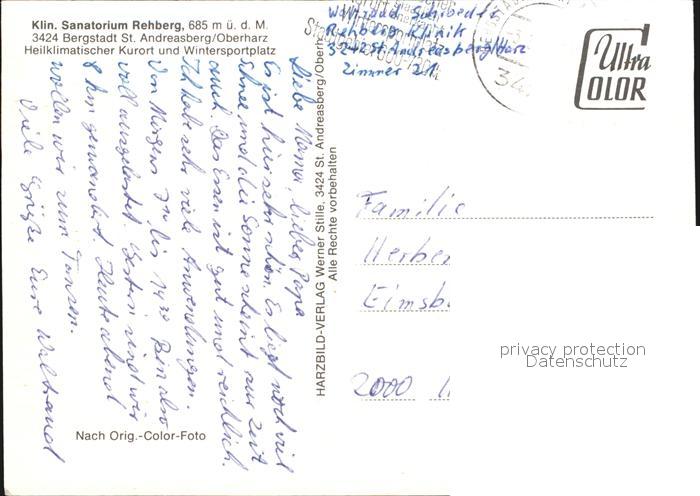 Klin. Sanatorium Rehberg, 685 m ü. d. M.
3424 Bergstadt St. Andreasberg/Oberharz
Heilklimatischer Kurort und Wintersportplatz
Liebe Mama, lieber Papa
Es ist hier sehr schön. Es liegt noch viel
Schnee und die Sonne scheint zur Zeit
auch. Das Essen ist gut und reichlich.
Ich habe sehr viele Anwendungen.
Von Morgens 7 bis Bin also
voll ausgelastet. Gestern sind wir
8 km gewandert. Heute abend
wollen wir zum Tanzen.
Viele Grüße Eure Waltraud
Nach Orig.-Color-Foto
HARZBILD-VERLAG Werner Stille, 3424 St. Andreasberg/Oberharz
Alle Rechte vorbehalten
Waltraud
Rehberg Klinik
3242 St. Andreasberg/Harz
Zimmer 21
Ultra
COLOR
Familie
Herber
Eimsb
2000 H
privacy protection
Datenschutz